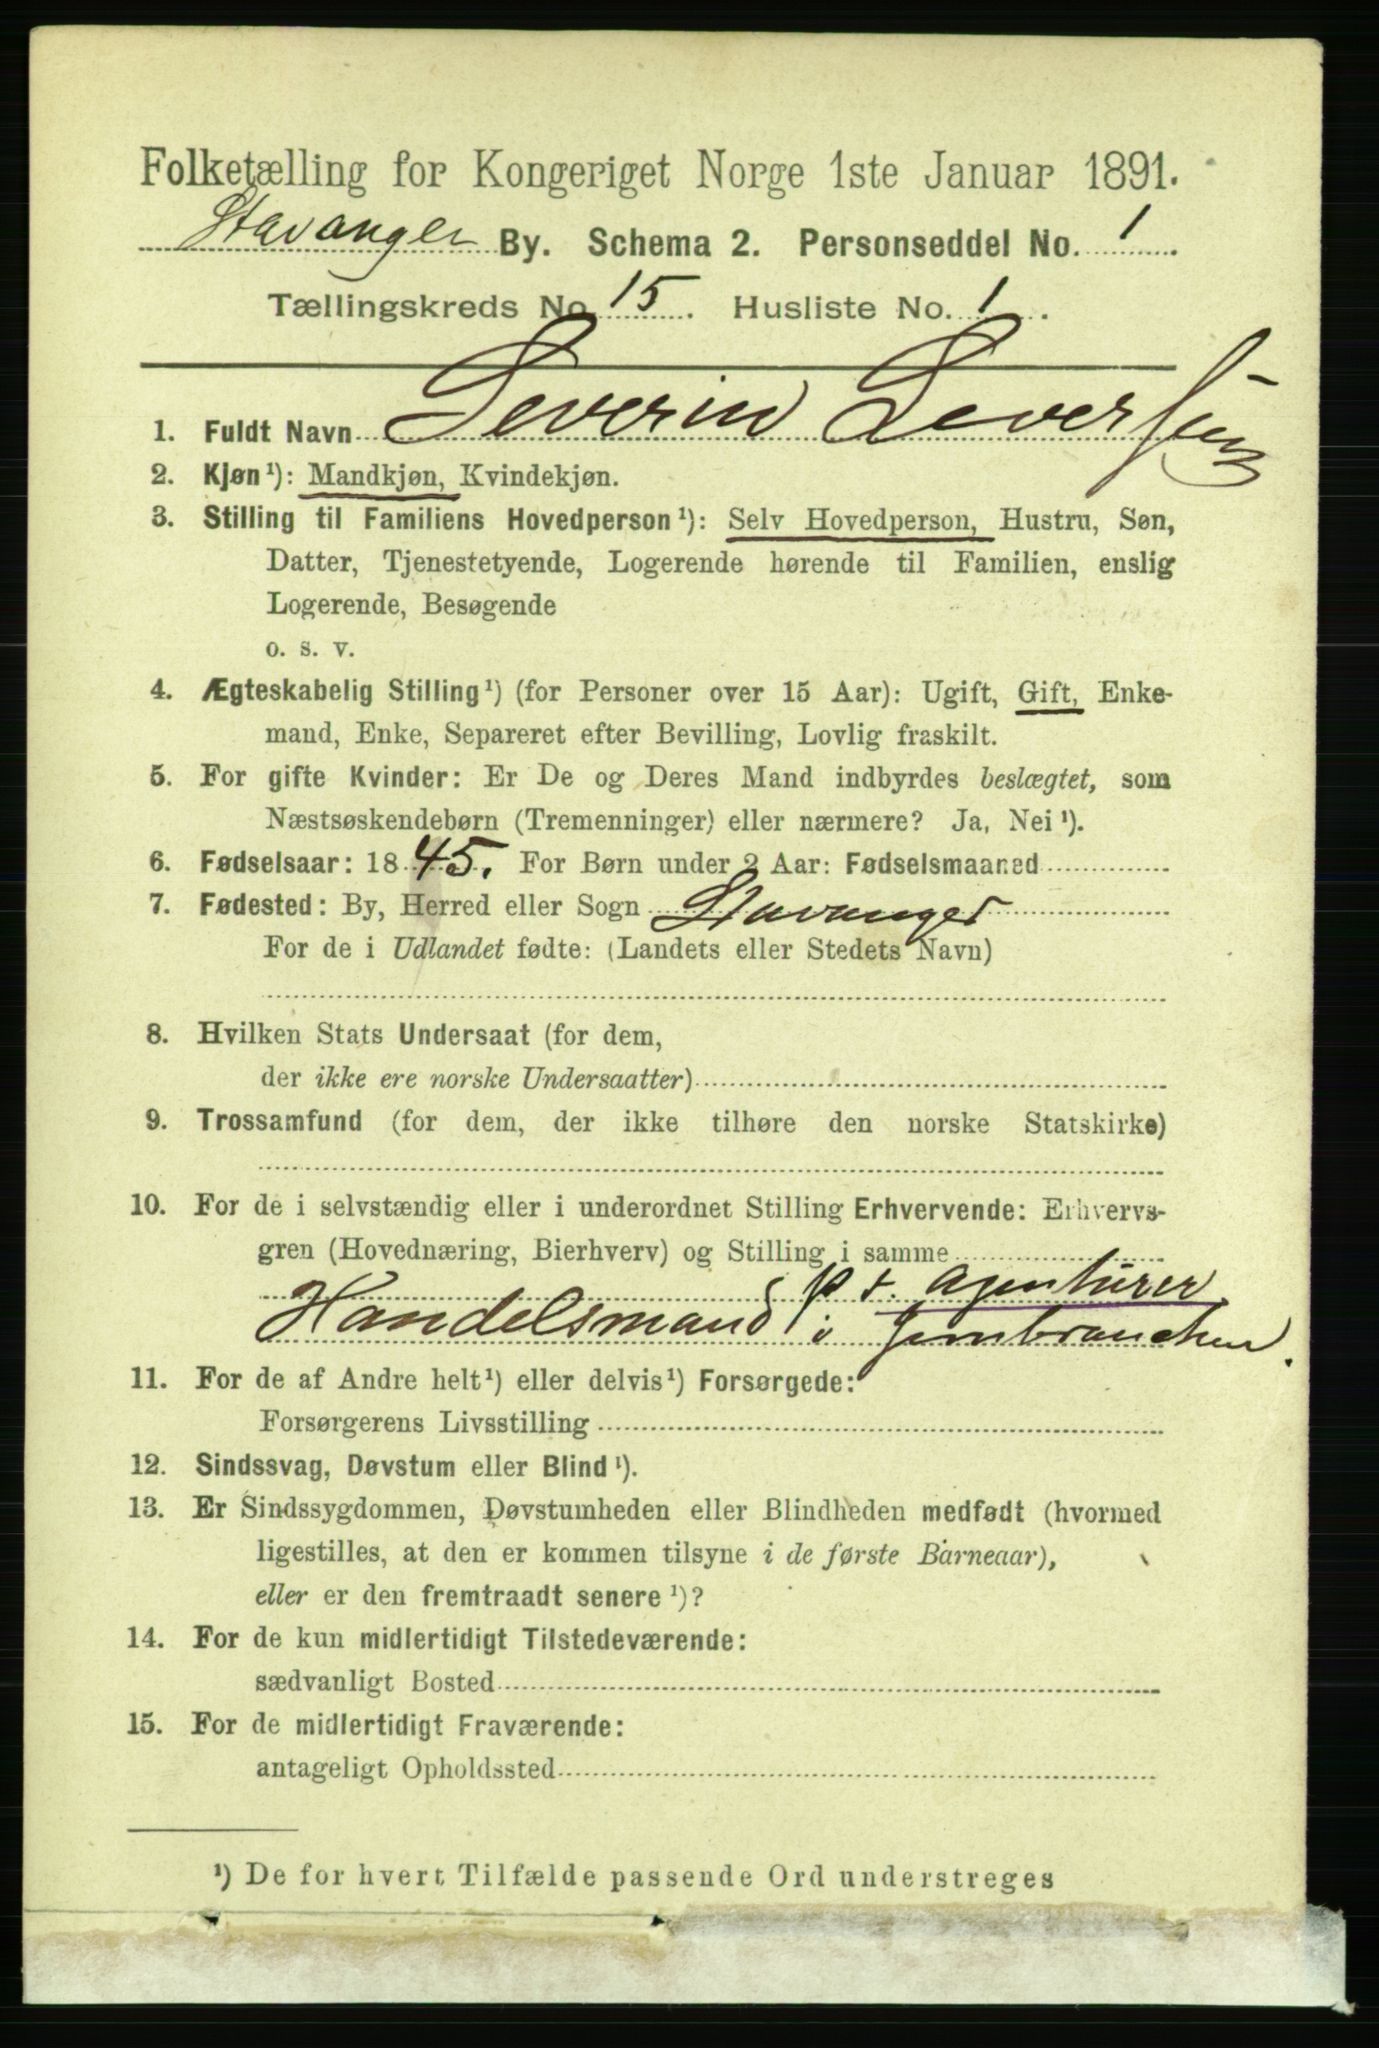 Folketælling for Kongeriget Norge 1ste Januar 1891.
Stavanger By. Schema 2. Personseddel No. 1
Tællingskreds No. 15. Husliste No. 1.
1. Fuldt Navn Severin Seversen
2. Kjøn¹): Mandkjøn, Kvindekjøn.
3. Stilling til Familiens Hovedperson¹): Selv Hovedperson, Hustru, Søn,
Datter, Tjenestetyende, Logerende hørende til Familien, enslig
Logerende, Besøgende
o. s. v.
4. Ægteskabelig Stilling¹) (for Personer over 15 Aar): Ugift, Gift, Enke-
mand, Enke, Separeret efter Bevilling, Lovlig fraskilt.
5. For gifte Kvinder: Er De og Deres Mand indbyrdes beslægtet, som
Næstsøskendebørn (Tremenninger) eller nærmere? Ja, Nei¹).
6. Fødselsaar: 1845. For Børn under 2 Aar: Fødselsmaaned
7. Fødested: By, Herred eller Sogn Stavanger
For de i Udlandet fødte: (Landets eller Stedets Navn)
8. Hvilken Stats Undersaat (for dem,
der ikke ere norske Undersaatter)
9. Trossamfund (for dem, der ikke tilhøre den norske Statskirke)
10. For de i selvstændig eller i underordnet Stilling Erhvervende: Erhvervs-
gren (Hovednæring, Bierhverv) og Stilling i samme
p t. Agenturer
Handelsmand i Jernbranchen.
11. For de af Andre helt¹) eller delvis¹) Forsørgede:
Forsørgerens Livsstilling
12. Sindssvag, Døvstum eller Blind¹).
13. Er Sindssygdommen, Døvstumheden eller Blindheden medfødt (hvormed
ligestilles, at den er kommen tilsyne i de første Barneaar),
eller er den fremtraadt senere¹)?
14. For de kun midlertidigt Tilstedeværende:
sædvanligt Bosted
15. For de midlertidigt Fraværende:
antageligt Opholdssted
¹) De for hvert Tilfælde passende Ord understreges